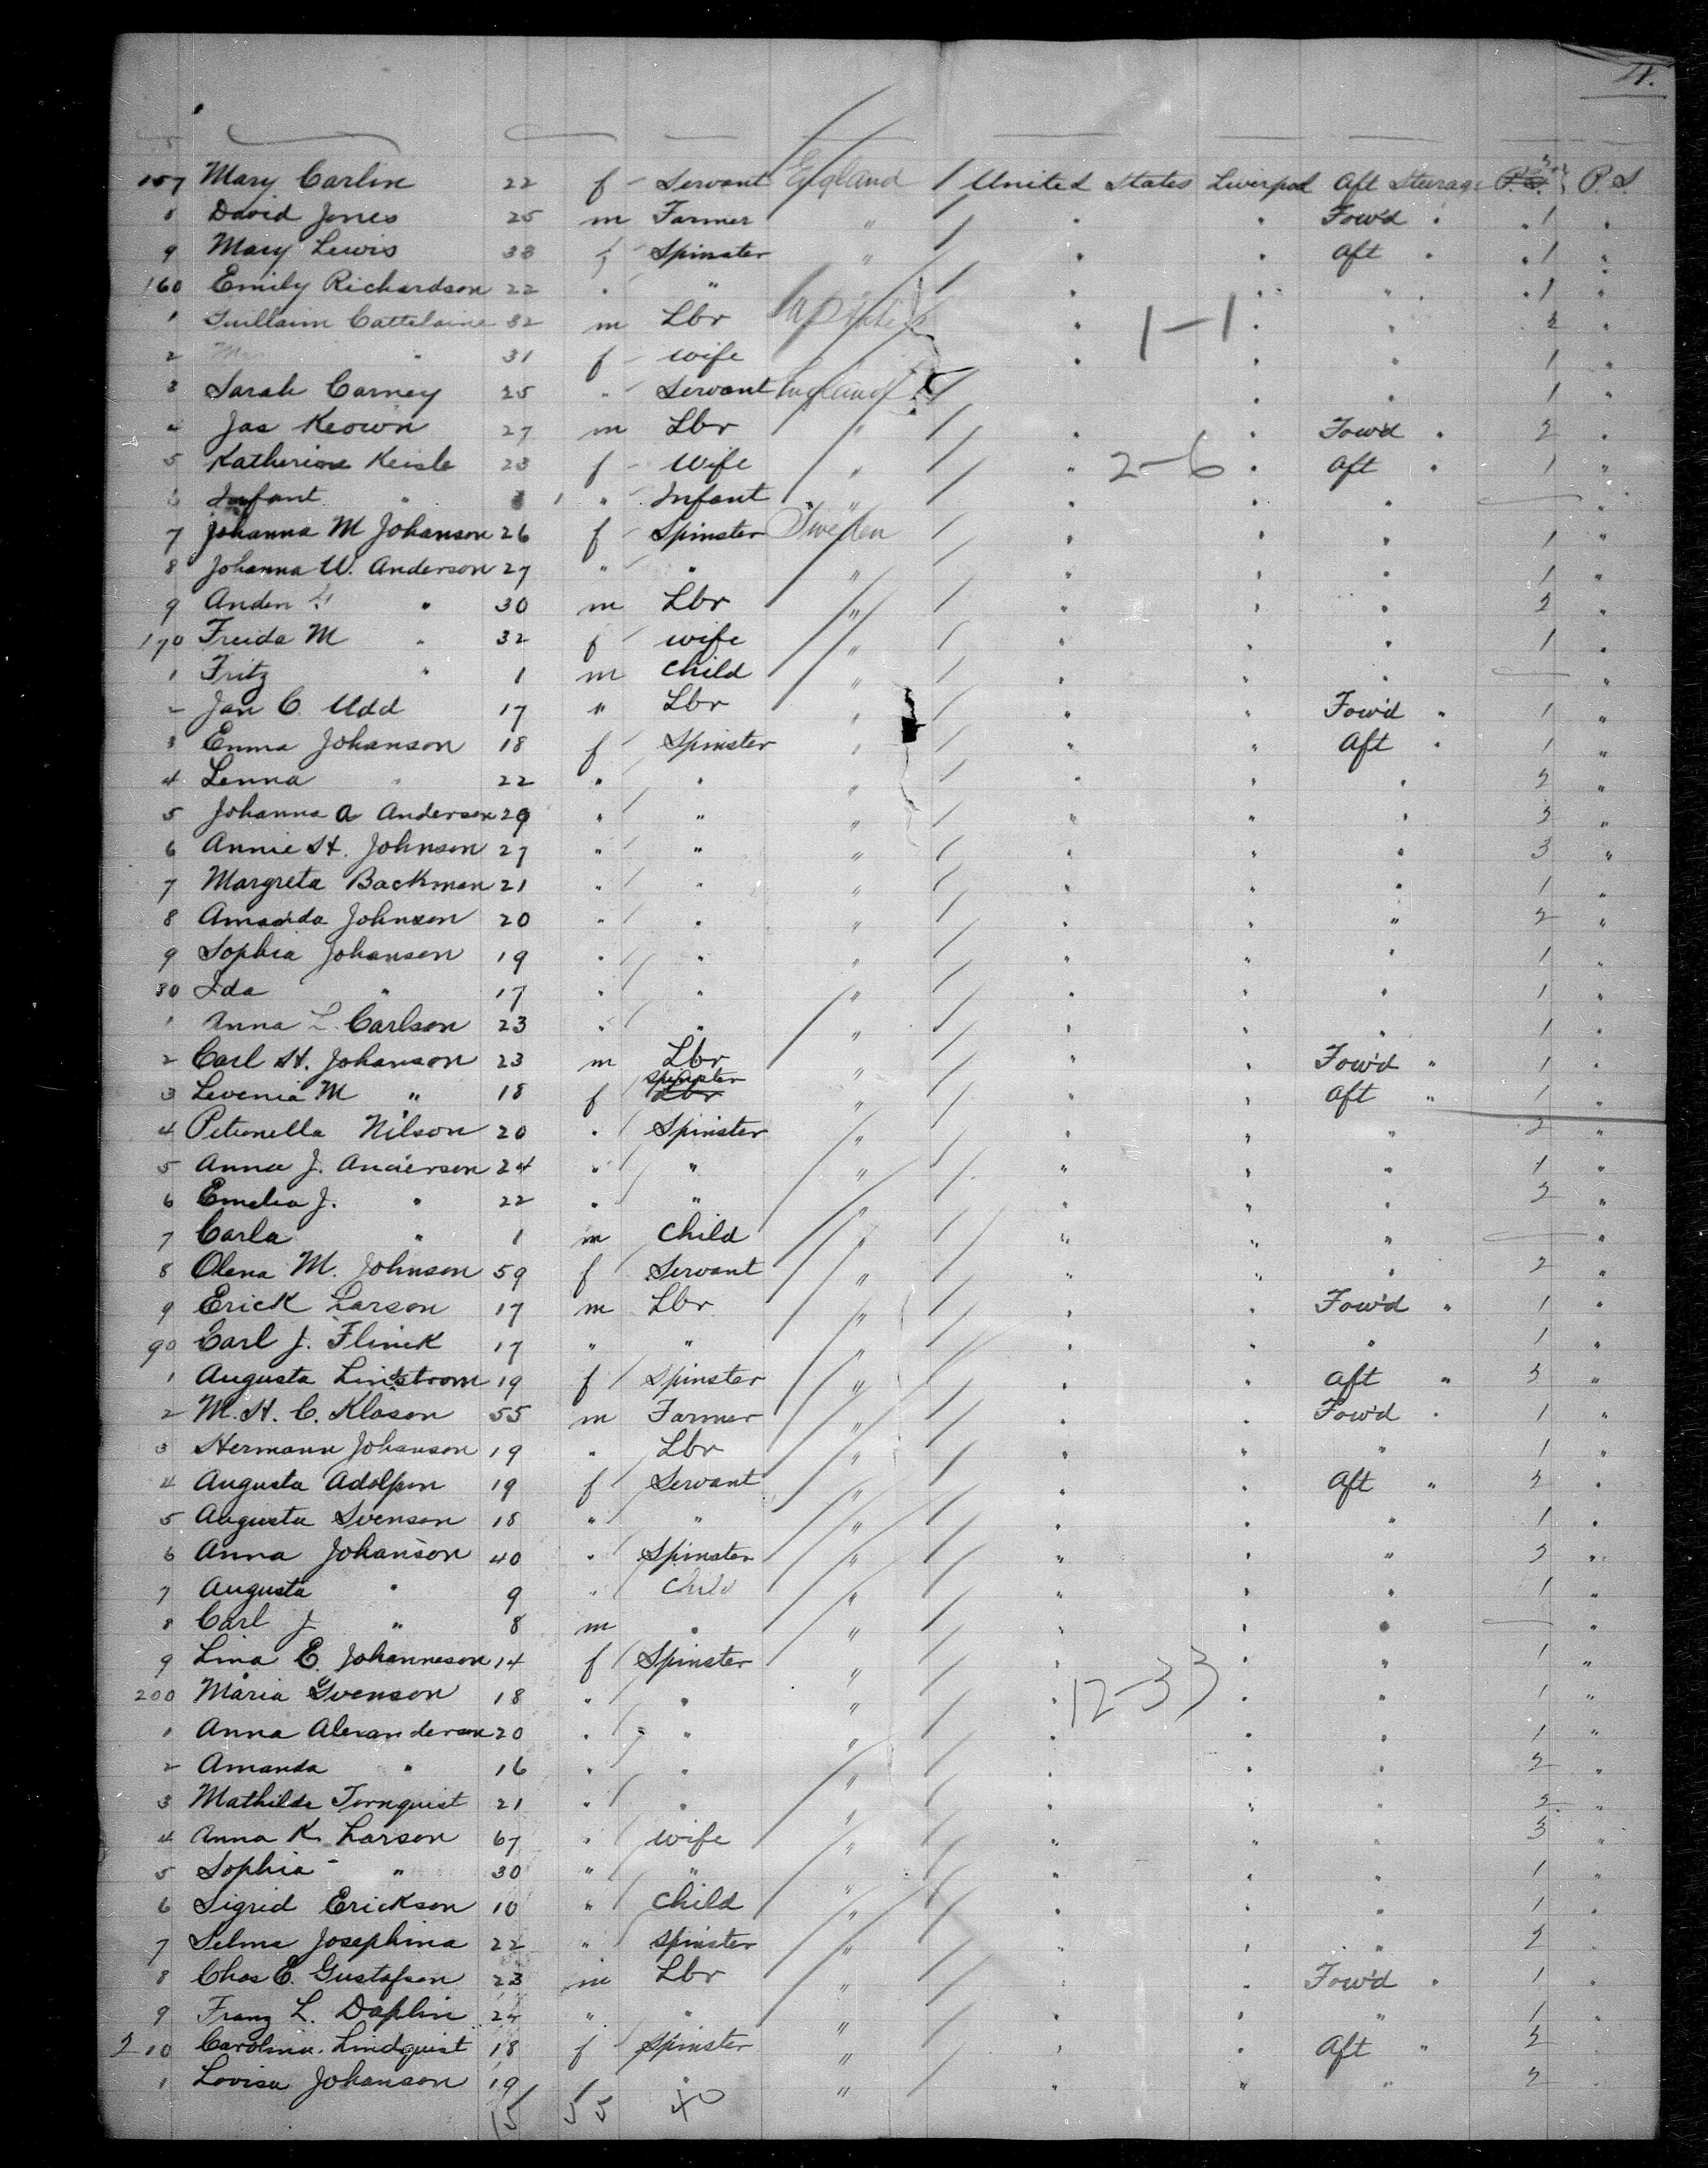 4.
157 Mary Carlin 22 f Servant England / United States Liverpool Aft Steerage P.S. P.S
8 David Jones 25 m Farmer " / " " Fow'd " 1 "
9 Mary Lewis 33 f Spinster " / " " Aft " 1 "
160 Emily Richardson 22 " " / " " " 1 "
1 Guillaim Cattelaine 32 m Lbr " 1-1 " " 2 "
2 " 31 f wife " " " 1 "
3 Sarah Carney 25 " Servant England / " " 1 "
4 Jas Keown 27 m Lbr " / " " Fow'd " 2 "
5 Katherine Keisle 23 f Wife " / " 2-6 " Aft " 1 "
6 Infant " 1 " Infant " / " " " — "
7 Johanna M Johanson 26 f Spinster Sweden / " " " 1 "
8 Johanna W. Anderson 27 " " " / " " " 1 "
9 Anden " 30 m Lbr " / " " " 2 "
170 Freida M " 32 f wife " / " " " 1 "
1 Fritz " 1 m Child " / " " " — "
2 Jan C. Udd 17 " Lbr " / " " Fow'd " 1 "
3 Emma Johanson 18 f Spinster " / " " Aft " 1 "
4 Lenna " 22 " " " / " " " 2 "
5 Johanna A Anderson 29 " " " / " " " 3 "
6 Annie H. Johnson 27 " " " / " " " 3 "
7 Margreta Backman 21 " " " / " " " 1 "
8 Amanda Johnson 20 " " " / " " " 2 "
9 Sophia Johanson 19 " " " / " " " 1 "
80 Ida " 17 " " " / " " " 1 "
1 Anna L. Carlson 23 " " " / " " " 1 "
2 Carl H. Johanson 23 m Lbr " / " " Fow'd " 1 "
3 Levenia M " 18 f Spinster Lbr " / " " Aft " 1 "
4 Petronella Nilson 20 " Spinster " / " " " 2 "
5 Anna J. Anderson 24 " " " / " " " 1 "
6 Emelia J. " 22 " " " / " " " 2 "
7 Carla " 1 m Child " / " " " — "
8 Olena M. Johnson 59 f Servant " / " " " 2 "
9 Erick Larson 17 m Lbr " / " " Fow'd " 1 "
90 Carl J. Flinck 17 " " " / " " " 1 "
1 Augusta Lindstrom 19 f Spinster " / " " Aft " 3 "
2 M. H. C. Klason 55 m Farmer " / " " Fow'd " 1 "
3 Hermann Johanson 19 " Lbr " / " " " 1 "
4 Augusta Adolfson 19 f Servant " / " " Aft " 2 "
5 Augusta Svenson 18 " " " / " " " 1 "
6 Anna Johanson 40 " Spinster " / " " " 3 "
7 Augusta " 9 " Child " / " " " 1 "
8 Carl J " 8 m " " / " " " — "
9 Lina E. Johanneson 14 f Spinster " / " " " 1 "
200 Maria Svenson 18 " " " / " 12-33 " " 1 "
1 Anna Alexanderson 20 " " " / " " " 1 "
2 Amanda " 16 " " " / " " " 2 "
3 Mathilda Tornquist 21 " " " / " " " 2 "
4 Anna K. Larson 67 " wife " / " " " 3 "
5 Sophia " 30 " " " / " " " 1 "
6 Sigrid Erickson 10 " Child " / " " " 1 "
7 Selma Josephina 22 " Spinster " / " " " 2 "
8 Chas E. Gustafson 23 m Lbr " / " " Fow'd " 1 "
9 Franz L. Daplin 24 " " " / " " " 1 "
210 Carolina Lindquist 18 f Spinster " / " " Aft " 3
1 Lovisa Johanson 19 " " / " " " 2 "
15 55 40